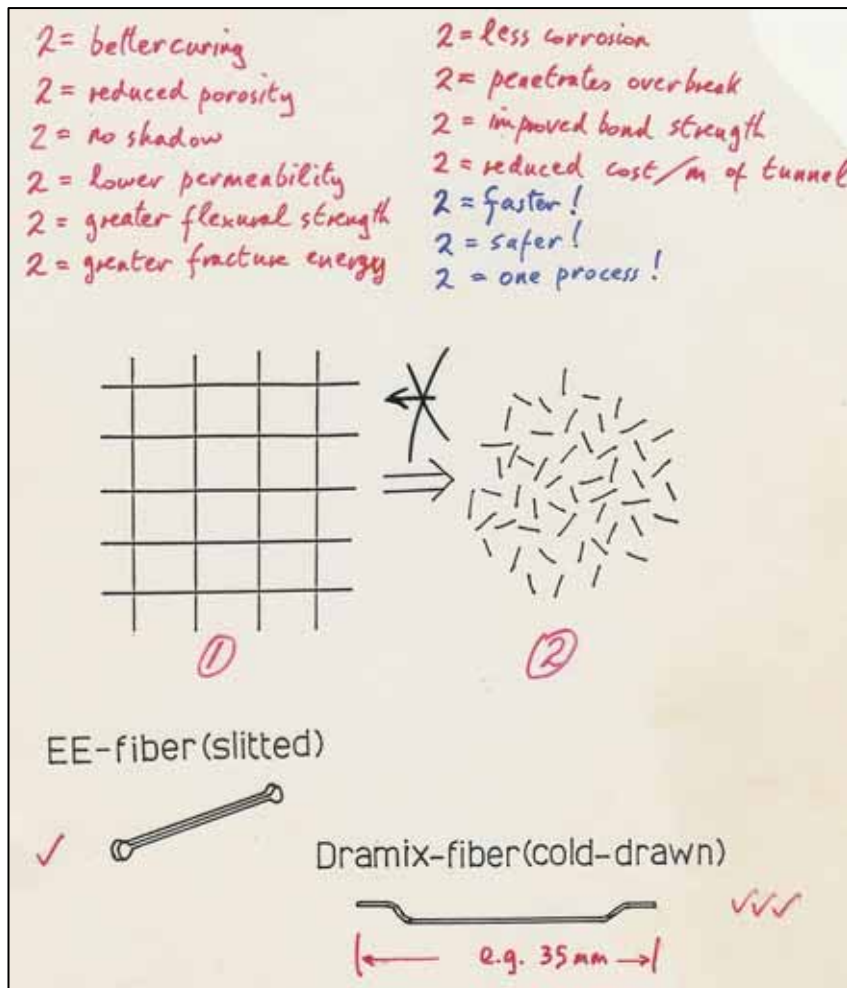 2 = better curing
2 = reduced porosity
2 = no shadow
2 = lower permeability
2 = greater flexural strength
2 = greater fracture energy
2 = less corrosion
2 = penetrates overbreak
2 = improved bond strength
2 = reduced cost/m of tunnel
2 = faster!
2 = safer!
2 = one process!
1
2
EE-fiber(slitted)
Dramix-fiber(cold-drawn)
e.g. 35 mm